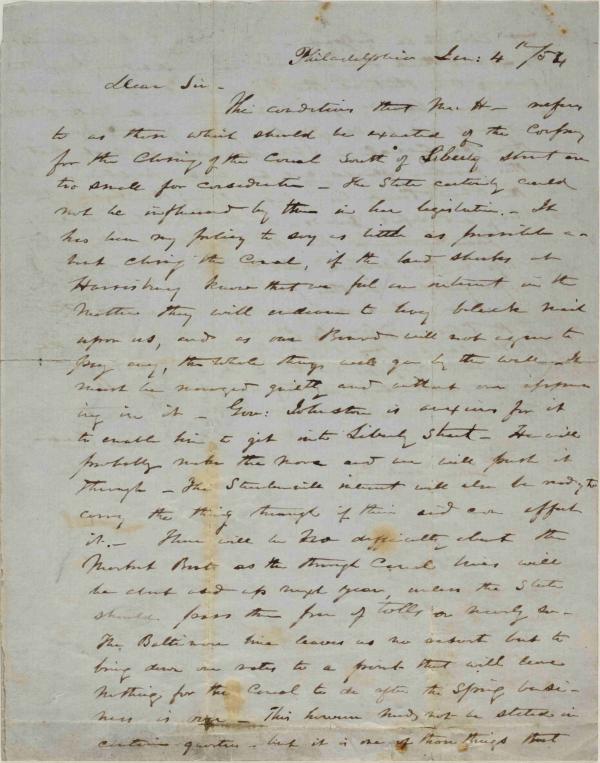 Philadelphia Jan: 4th/54
Dear Sir -
The conditions that Mr. H- refers
to as those which should be exacted of the Compy
for the Closing of the Canal South of Liberty Street are
too small for consideration - The State certainly could
not be influenced by them in her legislation. - It
has been my policy to say as little as possible a-
bout closing the Canal, if the land sharks at
Harrisburg know that we feel an interest in the
matter they will endeavor to levy black mail
upon us, and as our Board will not agree to
pay any, the whole thing will go by the wall - It
must be managed quietly and without our appear
ing in it - Gov: Johnston is anxious for it
to enable him to get into Liberty Street - He will
probably make the move and we will push it
through - The Steubenville interest will also be ready to
carry the thing through if their aid can effect
it. - There will be no difficulty about the
Market Boats as the through Canal lines will
be about used up next year, unless the State
should pass them free of tolls or nearly so -
The Baltimore line leaves us no resort but to
bring down our rates to a point that will leave
nothing for the Canal to do after the Spring busi-
ness is over - This however need not be stated in
certain quarters - but it is one of those things that